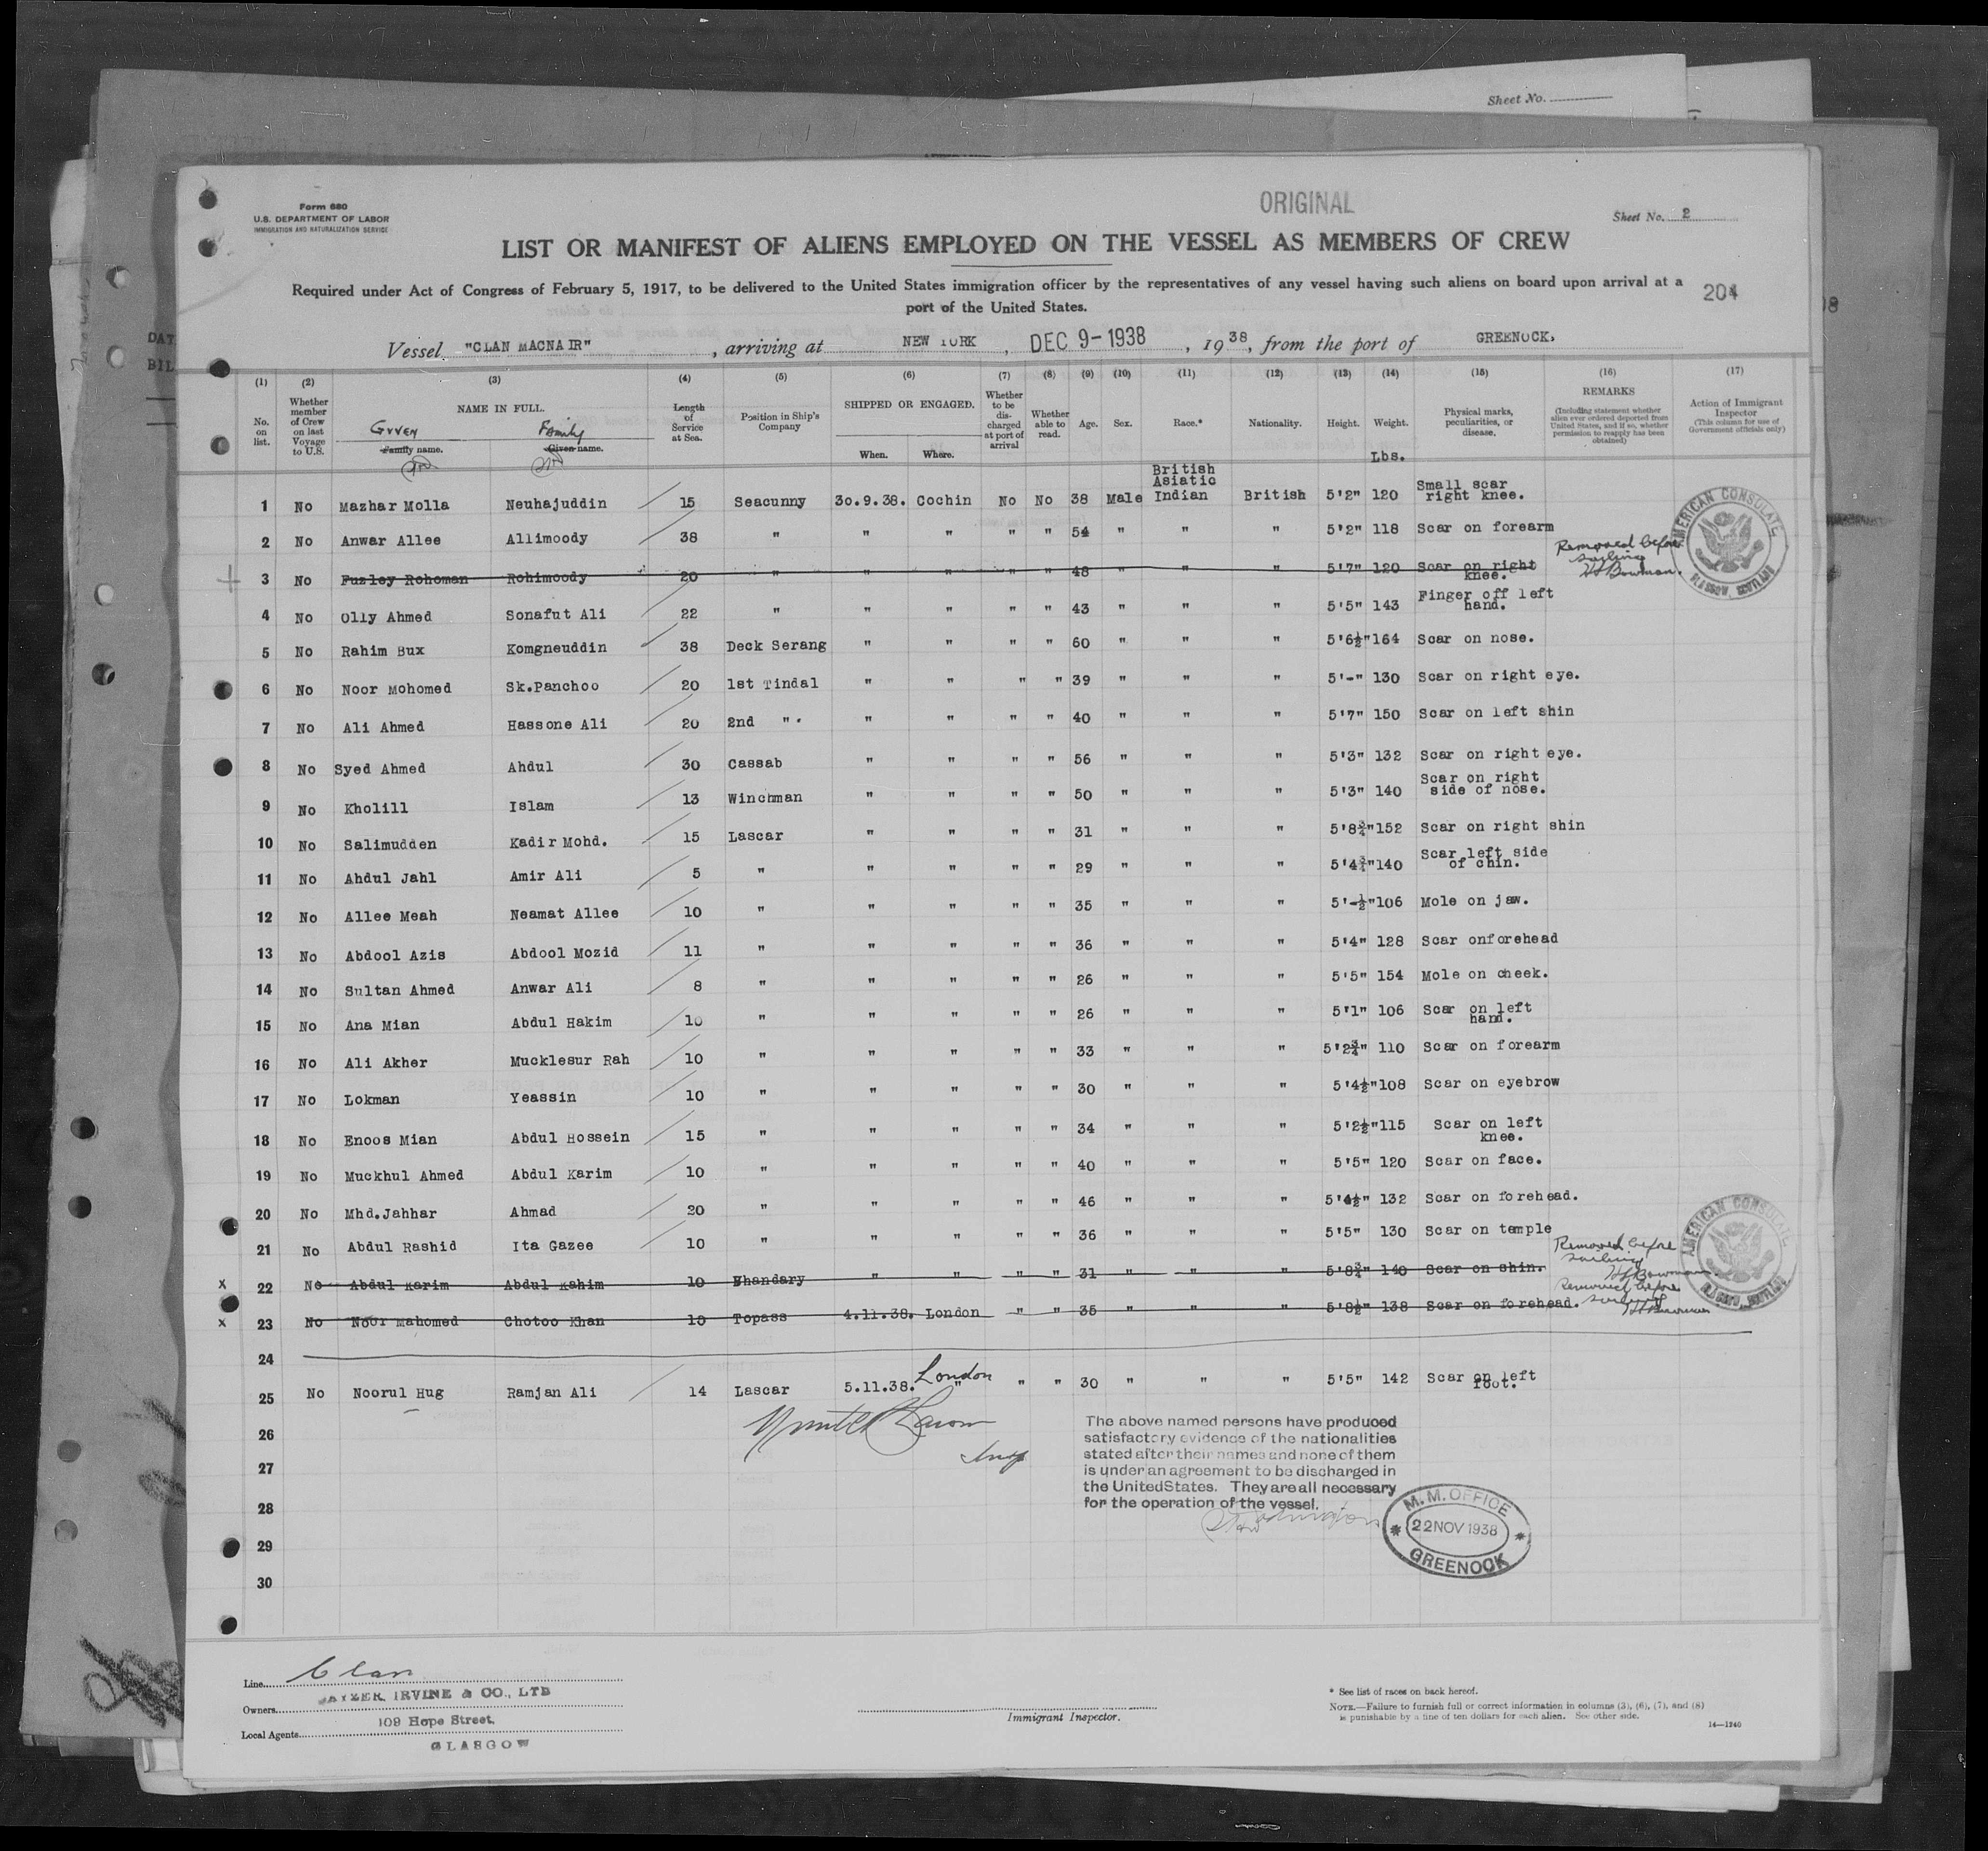 Sheet No.
Form 680
U.S. DEPARTMENT OF LABOR
IMMIGRATION AND NATURALIZATION SERVICE
ORIGINAL
Sheet No. 2
LIST OR MANIFEST OF ALIENS EMPLOYED ON THE VESSEL AS MEMBERS OF CREW
Required under Act of Congress of February 5, 1917, to be delivered to the United States immigration officer by the representatives of any vessel having such aliens on board upon arrival at a
port of the United States.
204
Vessel "CLAN MACNAIR", arriving at NEW YORK, DEC 9-1938, 1938, from the port of GREENOCK.
(1) (2) (3) (4) (5) (6) (7) (8) (9) (10) (11) (12) (13) (14) (15) (16) (17)
No. on list.
Whether member of Crew on last Voyage to U.S.
NAME IN FULL.
Given Family
Family name. Given name.
Length of Service at Sea.
Position in Ship's Company
SHIPPED OR ENGAGED.
When. Where.
Whether to be discharged at port of arrival
Whether able to read.
Age.
Sex.
Race.*
Nationality.
Height.
Weight.
Lbs.
Physical marks, peculiarities, or disease.
REMARKS
(Including statement whether alien ever ordered deported from United States, and if so, whether permission to reapply has been obtained)
Action of Immigrant Inspector
(This column for use of Government officials only)
1 No Mazhar Molla Neuhajuddin 15 Seacunny 30.9.38. Cochin No No 38 Male British Asiatic Indian British 5'2" 120 Small scar right knee.
2 No Anwar Allee Allimoody 38 " " " " " 54 " " " 5'2" 118 Scar on forearm
3 No Fuzley Rohoman Rohimoody 20 " " " " " 48 " " " 5'7" 120 Scar on right knee. Removed before sailing HJBowman.
4 No Olly Ahmed Sonafut Ali 22 " " " " " 43 " " " 5'5" 143 Finger off left hand.
5 No Rahim Bux Komgneuddin 38 Deck Serang " " " " 60 " " " 5'6½" 164 Scar on nose.
6 No Noor Mohomed Sk.Panchoo 20 1st Tindal " " " " 39 " " " 5'-" 130 Scar on right eye.
7 No Ali Ahmed Hassone Ali 20 2nd " " " " " 40 " " " 5'7" 150 Scar on left shin
8 No Syed Ahmed Ahdul 30 Cassab " " " " 56 " " " 5'3" 132 Scar on right eye.
9 No Kholill Islam 13 Winchman " " " " 50 " " " 5'3" 140 Scar on right side of nose.
10 No Salimudden Kadir Mohd. 15 Lascar " " " " 31 " " " 5'8¾" 152 Scar on right shin
11 No Ahdul Jahl Amir Ali 5 " " " " " 29 " " " 5'4¾" 140 Scar left side of chin.
12 No Allee Meah Neamat Allee 10 " " " " " 35 " " " 5'-½" 106 Mole on jaw.
13 No Abdool Azis Abdool Mozid 11 " " " " " 36 " " " 5'4" 128 Scar onforehead
14 No Sultan Ahmed Anwar Ali 8 " " " " " 26 " " " 5'5" 154 Mole on cheek.
15 No Ana Mian Abdul Hakim 10 " " " " " 26 " " " 5'1" 106 Scar on left hand.
16 No Ali Akher Mucklesur Rah 10 " " " " " 33 " " " 5'2¾" 110 Scar on forearm
17 No Lokman Yeassin 10 " " " " " 30 " " " 5'4½" 108 Scar on eyebrow
18 No Enoos Mian Abdul Hossein 15 " " " " " 34 " " " 5'2½" 115 Scar on left knee.
19 No Muckhul Ahmed Abdul Karim 10 " " " " " 40 " " " 5'5" 120 Scar on face.
20 No Mhd.Jahhar Ahmad 20 " " " " " 46 " " " 5'4½" 132 Scar on forehead.
21 No Abdul Rashid Ita Gazee 10 " " " " " 36 " " " 5'5" 130 Scar on temple
x 22 No Abdul Karim Abdul Kahim 10 Bhandary " " " " 31 " " " 5'8¾" 140 Scar on shin. Removed before sailing HJBowman.
x 23 No Noor Mahomed Chotoo Khan 10 Topass 4.11.38. London " " 35 " " " 5'8½" 138 Scar on forehead. Removed before sailing HJBowman
24
25 No Noorul Hug Ramjan Ali 14 Lascar 5.11.38. London " " " 30 " " " 5'5" 142 Scar on left foot.
26
27
28
29
30
Insp
AMERICAN CONSULATE
GLASGOW, SCOTLAND
AMERICAN CONSULATE
GLASGOW, SCOTLAND
The above named persons have produced
satisfactory evidence of the nationalities
stated after their names and none of them
is under an agreement to be discharged in
the United States. They are all necessary
for the operation of the vessel.
M. M. OFFICE
22 NOV 1938
GREENOCK
Line Clan
Owners CAYZER, IRVINE & CO., LTD
109 Hope Street,
Local Agents GLASGOW
Immigrant Inspector.
* See list of races on back hereof.
NOTE.—Failure to furnish full or correct information in columns (3), (6), (7), and (8)
is punishable by a fine of ten dollars for each alien. See other side.
14—1240